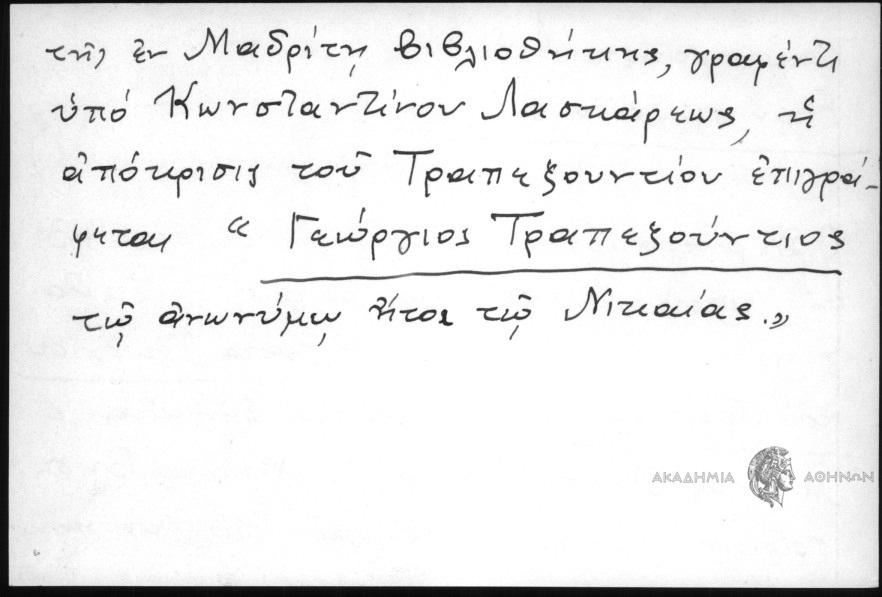 τῆς ἐν Μαδρίτῃ βιβλιοθήκης, γραφέντι
ὑπό Κωνσταντίνου Λασκάρεως, ἡ
ἀπόκρισις τοῦ Τραπεζουντίου ἐπιγρά-
φεται “ Γεώργιος Τραπεζούντιος
τῷ ἀνωνύμῳ ἤτοι τῷ Νικαίας.”
ΑΚΑΔΗΜΙΑ ΑΘΗΝΩΝ